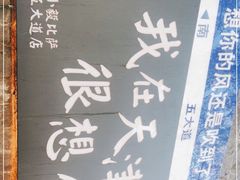 想你的风还是吹到了
南
五大道
我在天津
很想
小毅比萨
五大道店